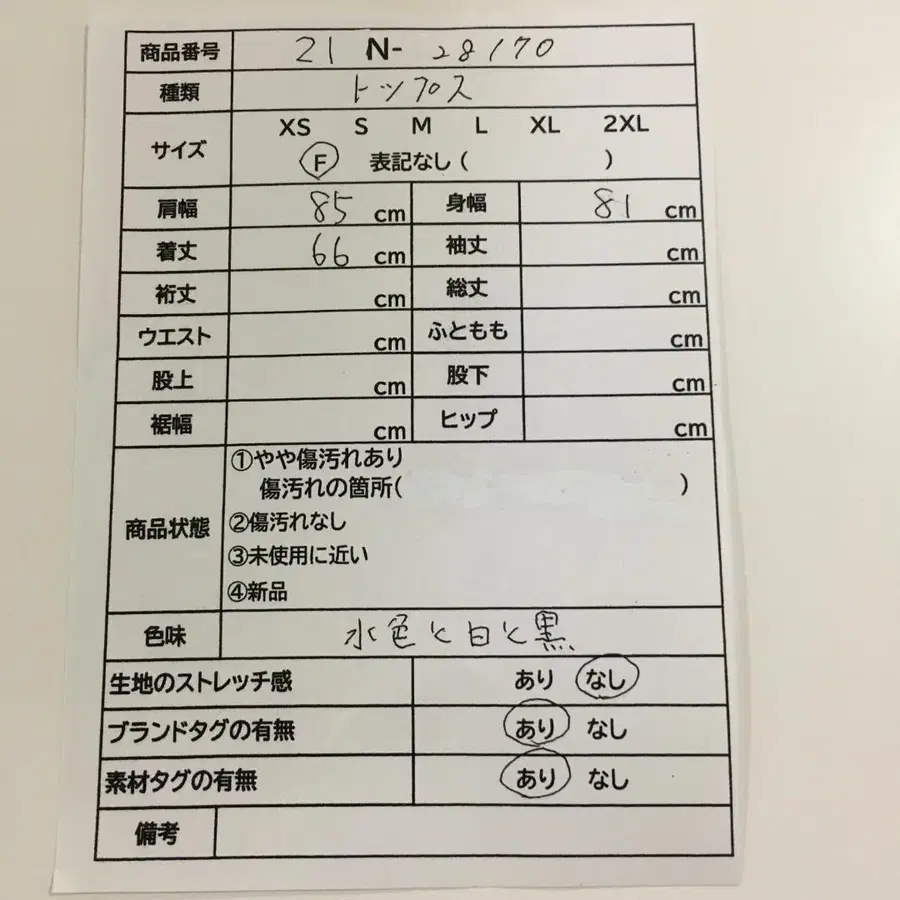 商品番号 21 N- 28170
種類 トップス
サイズ XS S M L XL 2XL
F 表記なし ( )
肩幅 85 cm 身幅 81 cm
着丈 66 cm 袖丈 cm
裄丈 cm 総丈 cm
ウエスト cm ふともも cm
股上 cm 股下 cm
裾幅 cm ヒップ cm
商品状態
①やや傷汚れあり
傷汚れの箇所( )
②傷汚れなし
③未使用に近い
④新品
色味 水色と白と黒
生地のストレッチ感 あり なし
ブランドタグの有無 あり なし
素材タグの有無 あり なし
備考